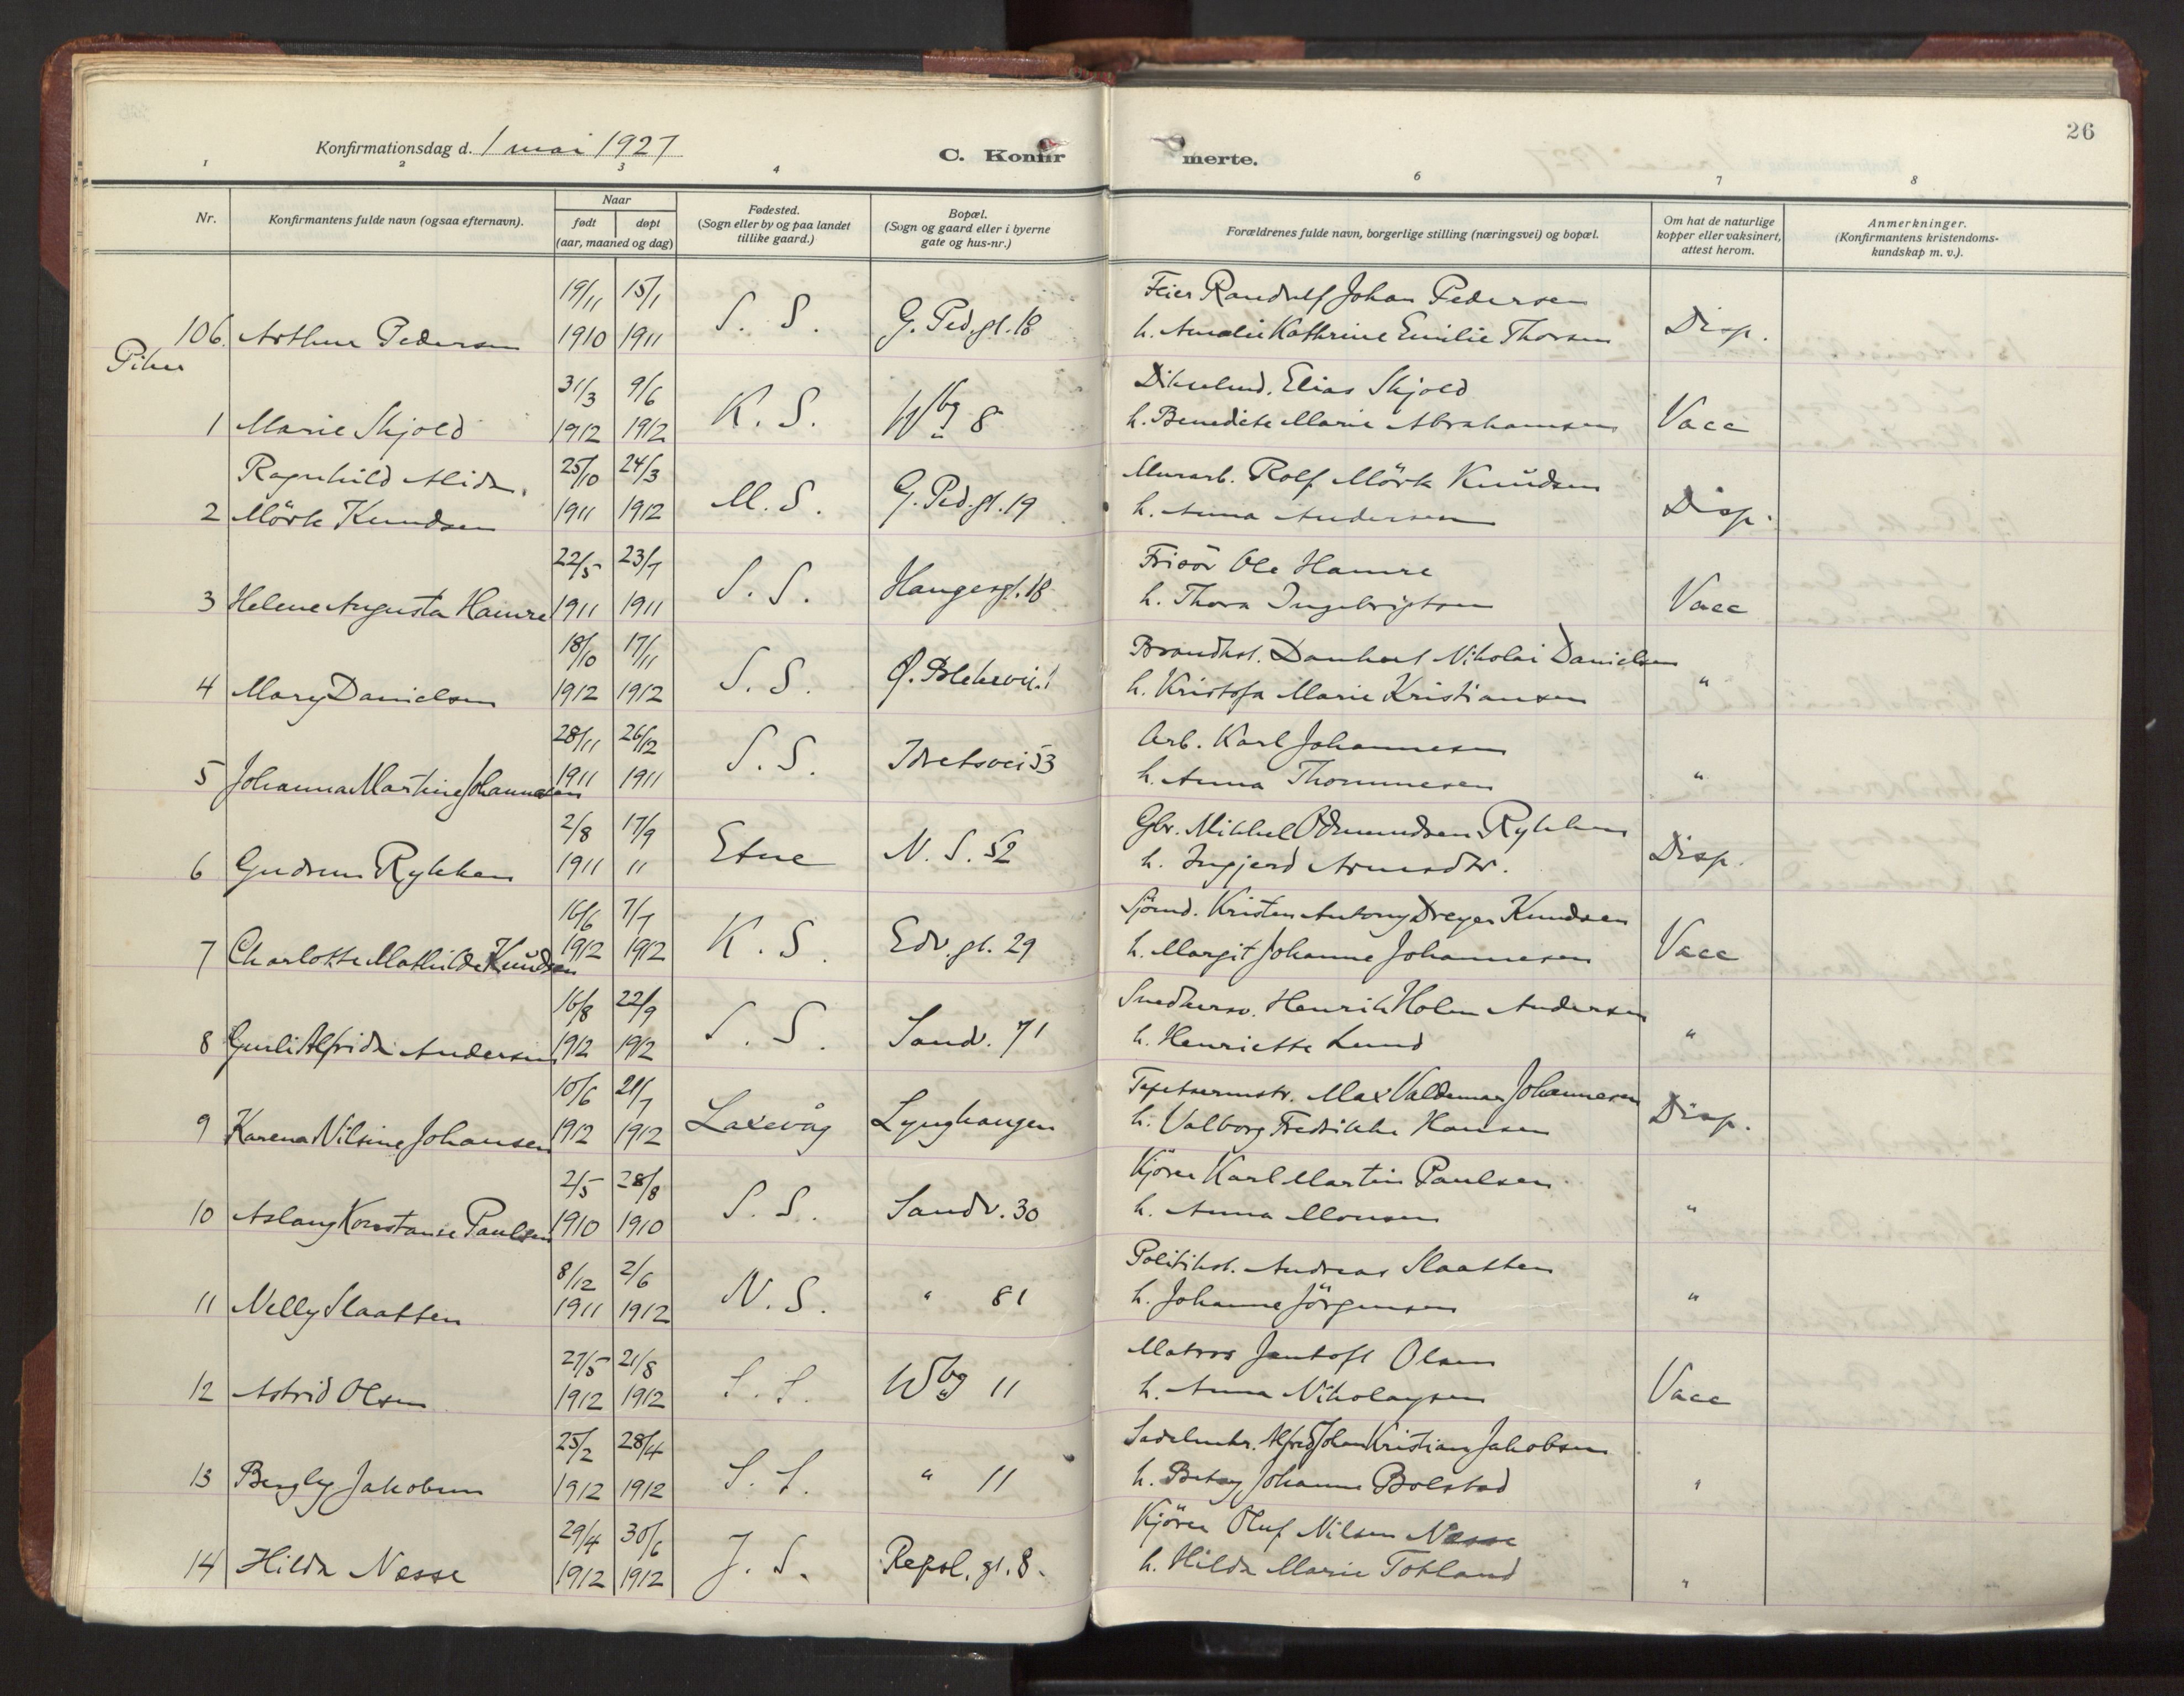 26
Konfirmationsdag d. 1 mai 1927
C. Konfirmerte.
1 2 3 4 6 7 8
Nr.
Konfirmantens fulde navn (ogsaa efternavn).
Naar
født døpt
(aar, maaned og dag)
Fødested.
(Sogn eller by og paa landet
tillike gaard.)
Bopæl.
(Sogn og gaard eller i byerne
gate og hus-nr.)
Forældrenes fulde navn, borgerlige stilling (næringsvei) og bopæl.
Om hat de naturlige
kopper eller vaksinert,
attest herom.
Anmerkninger.
(Konfirmantens kristendoms-
kundskap m. v.).
19/11 15/1 Feier Randulf Johan Pedersen
106. Arthur Pedersen 1910 1911 S. S. G. Ped.gt. 18 h. Amalie Kathrine Emilie Thorsen Disp.
Piker
31/3 9/6 Elias Skjold
1 Marie Skjold 1912 1912 K. S. Wbg 8 h. Benedicte Marie Abrahamsen Vacc
Ragnhild Alida 25/10 24/3 Murarb. Rolf Mörk Knudsen
2 Mörk Knudsen 1911 1912 M. S. G. Ped.gt. 19 h. Anna Andersen Disp.
22/5 23/7 Frisör Ole Hamre
3 Helene Augusta Hamre 1911 1911 S. S. Haugesgt. 18 h. Thora Ingebrigtsen Vacc
18/10 17/11 Brandkst. Dankert Nikolai Danielsen
4 Mary Danielsen 1912 1912 S. S. Ø. Blekevei. 1 h. Kristofa Marie Kristiansen "
28/11 26/12 Arb. Karl Johannesen
5 Johanna Martine Johannesen 1911 1911 S. S. Idretsvei 53 h. Anna Thommesen "
2/8 17/9 Gbr. Mikkel Odmundsen Rykken
6 Gudrun Rykken 1911 11 Etne N. S. 52 h. Ingjerd Disp.
16/6 7/7 Sjömd. Kristen Antony Dreyer Knudsen
7 Charlotte Mathilde Knudsen 1912 1912 K. S. Edv.gt. 29 h. Margit Johanne Johannesen Vacc
16/8 22/9 Snedkersv. Henrik Holm Andersen
8 Gunli Alfrida Andersen 1912 1912 S. S. Sandv. 71 h. Henriette Lund "
10/6 21/7 Tapetsermstr. Max Valdemar Johannesen
9 Karena Nilsine Johansen 1912 1912 Laxevåg Lynghaugen h. Valborg Fredrikke Hansen Disp.
2/5 28/8 Kjörer Karl Martin Paulsen
10 Aslaug Konstanse Paulsen 1910 1910 S. S. Sandv. 30 h. Anna Monsen "
8/12 2/6 Politikst. Andreas Slaatten
11 Nelly Slaatten 1911 1912 N. S. " 81 h. Johanne Jörgensen "
27/5 21/8 Matros Jentoft Olsen
12 Astrid Olsen 1912 1912 S. S. Wbg 11 h. Anna Nikolaysen Vacc
25/2 28/4 Sadelmkr. Alfred Johan Kristian Jakobsen
13 Jakobsen 1912 1912 S. S. " 11 h. Betsy Johanne Bolstad "
29/4 30/6 Kjörer Oluf Nilsen Nesse
14 Hilda Nesse 1912 1912 J. S. Repsl. gt. 8. h. Hilda Marie Totland "